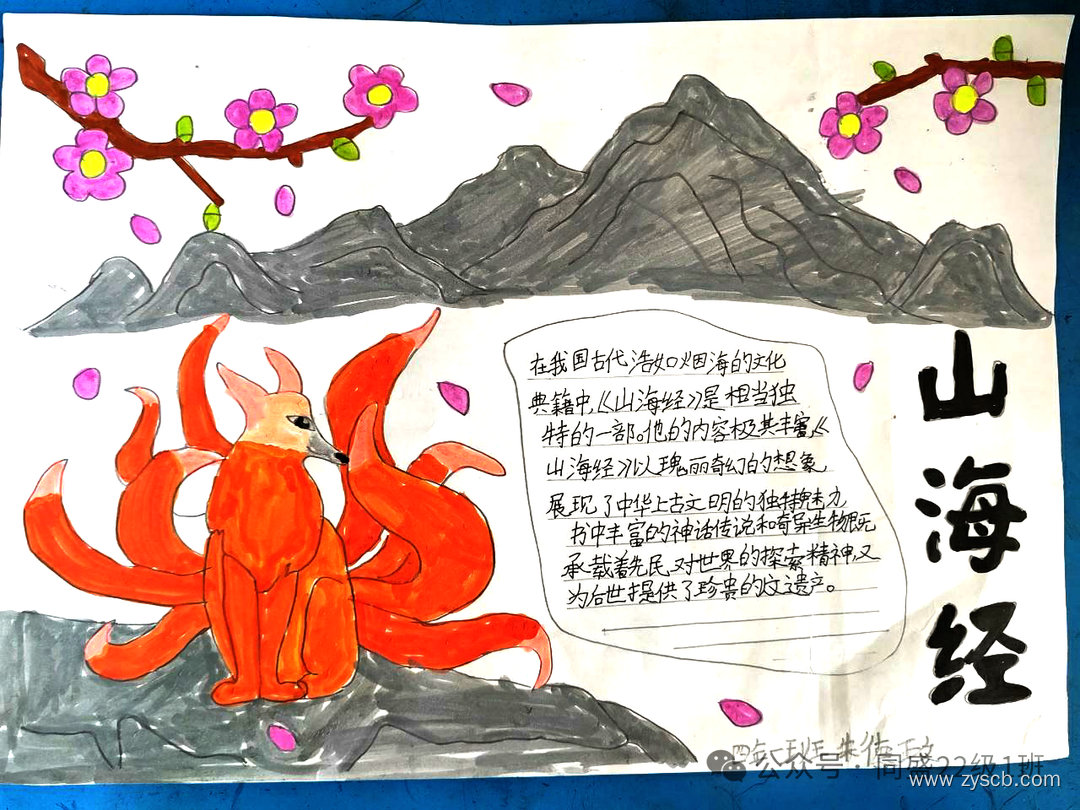 在我国古代浩如烟海的文化
典籍中,《山海经》是相当独
特的一部。他的内容极其丰富,《
山海经》以瑰丽奇幻的想象
展现了中华上古文明的独特魅力
书中丰富的神话传说和奇异生物既
承载着先民对世界的探索精神,又
为后世提供了珍贵的文遗产。
山
海
经
公众号·同盛22级1班
www.zyscb.com